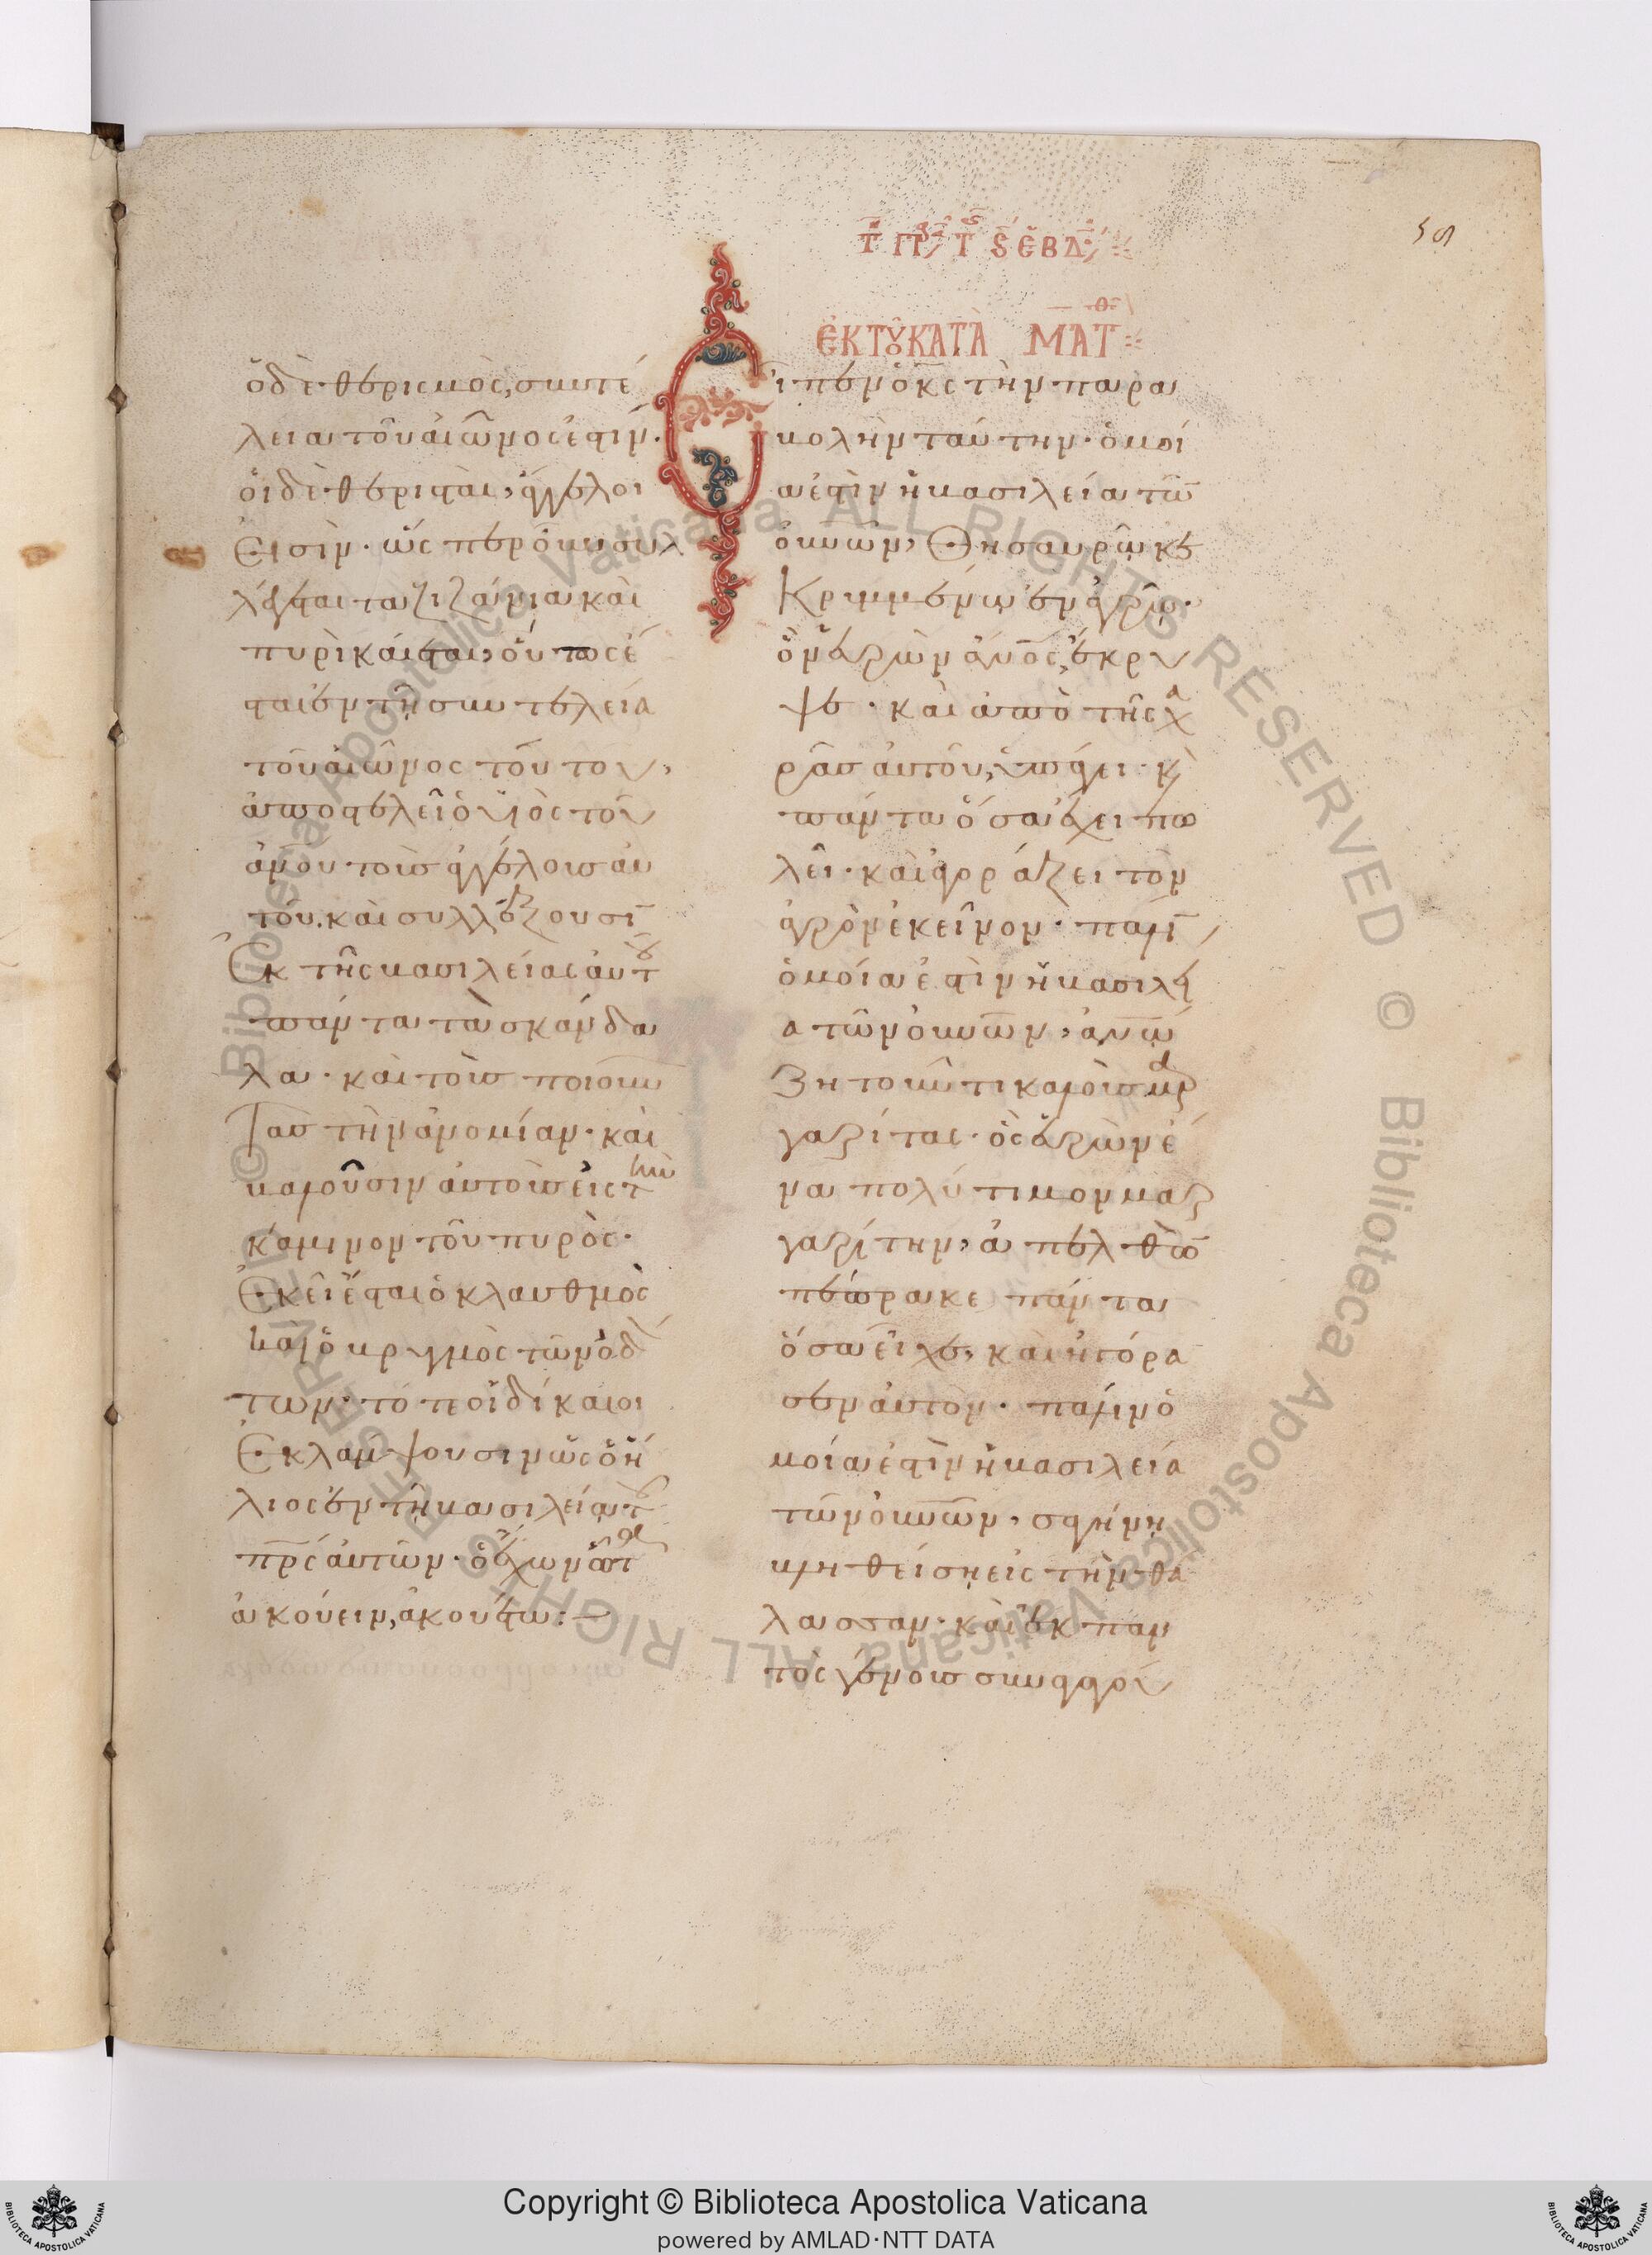 ὁ δὲ θερισμὸς, συντέ
λεια τοῦ αἰῶνος ἐστίν·
οἱ δὲ θερισταὶ, ἄγγελοι
Εἰσίν· ὥσπερ οὖν συλ
λέγεται τὰ ζιζάνια καὶ
πυρὶ καίεται, οὕτως ἔ
σται ἐν τῇ συντελεία
τοῦ αἰῶνος τούτου,
ἀποστελεῖ ὁ υἱὸς τοῦ
ἀνου τοὺς ἀγγέλους αὐ
τοῦ. καὶ συλλέξουσῑ
Ἐκ τῆς βασιλείας αὐτου
πάντα τὰ σκάνδα
λα· καὶ τοὺς ποιοῦν
Τας τὴν ἀνομίαν· καὶ
βαλοῦσιν αὐτοὺς εἰς τὴν
κάμινον τοῦ πυρός·
Ἐκεῖ ἔσται ὁ κλαυθμὸς
καὶ ὁ βρυγμὸς τῶν ὀδ
των· τότε οἱ δίκαιοι
Ἐκλάμψουσιν ὡς ὁ ἥ
λιος ἐν τῇ βασιλείᾳ τοῦ
πρς αὐτῶν· ὁ ἔχων ὦτα
ἀκούειν, ἀκουέτω:—
ΕΚ ΤΟΥ ΚΑΤᾺ ΜΑΤΘ
Εἶπεν ὁ κς τὴν παρα
βολὴν ταύτην· ὁμοί
α ἐστὶν ἡ βασιλεία τῶ
οὐνῶν, Θησαυρῷ κε
Κρυμμένῳ ἐν ἀγρῷ·
ὃν εὑρὼν ἄνος, ἔκρυ
ψε· καὶ ἀπὸ τῆς χα
ρᾶς αὐτοῦ, ὑπάγει· κὶ
πάντα ὅσα ἔχει πω
λεῖ· καὶ ἀγοράζει τὸν
ἀγρὸν ἐκεῖνον· πάλῑ
ὁμοία ἐστὶν ἡ βασιλεί
α τῶν οὐνῶν, ἀνῶ
Ζητοῦντι καλοὺς μαρ
γαρίτας· ὃς εὑρὼν ἕ
να πολύτιμον μαρ
γαρίτην, ἀπελθὼ
πέπρακε πάντα
ὅσα εἶχε, καὶ ἠγόρα
σεν αὐτόν· πάλιν ὁ
μοία ἐστὶν ἡ βασιλεία
τῶν οὐνῶν, σαγήνῃ
βληθείσῃ εἰς τὴν θά
λασσαν· καὶ ἐκ παν
τὸς γένους συναγαγού